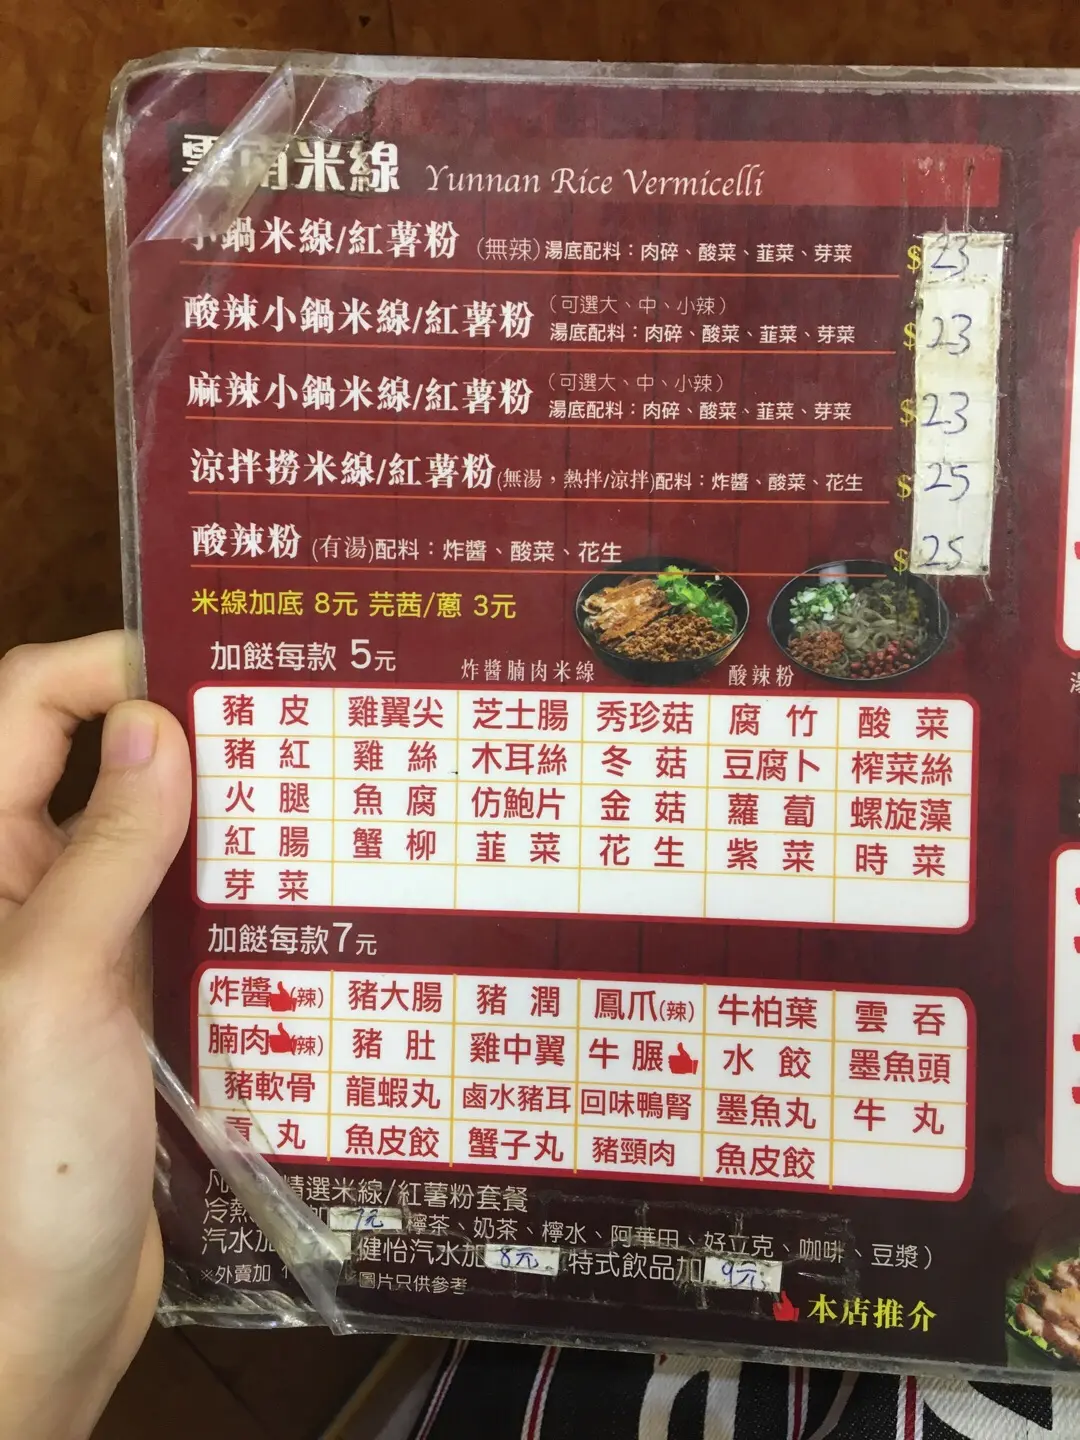 雲南米線 Yunnan Rice Vermicelli
小鍋米線/紅薯粉 (無辣) 湯底配料：肉碎、酸菜、韮菜、芽菜 $23
酸辣小鍋米線/紅薯粉 (可選大、中、小辣) 湯底配料：肉碎、酸菜、韮菜、芽菜 $23
麻辣小鍋米線/紅薯粉 (可選大、中、小辣) 湯底配料：肉碎、酸菜、韮菜、芽菜 $23
涼拌撈米線/紅薯粉 (無湯，熱拌/涼拌)配料：炸醬、酸菜、花生 $25
酸辣粉 (有湯)配料：炸醬、酸菜、花生 $25
米線加底 8元 芫茜/蔥 3元
加餸每款 5元
炸醬腩肉米線 酸辣粉
豬皮 雞翼尖 芝士腸 秀珍菇 腐竹 酸菜
豬紅 雞絲 木耳絲 冬菇 豆腐卜 榨菜絲
火腿 魚腐 仿鮑片 金菇 蘿蔔 螺旋藻
紅腸 蟹柳 韮菜 花生 紫菜 時菜
芽菜
加餸每款7元
炸醬(辣) 豬大腸 豬潤 鳳爪(辣) 牛柏葉 雲吞
腩肉(辣) 豬肚 雞中翼 牛𦟌 水餃 墨魚頭
豬軟骨 龍蝦丸 鹵水豬耳 回味鴨腎 墨魚丸 牛丸
丸 魚皮餃 蟹子丸 豬頸肉 魚皮餃
凡 精選米線/紅薯粉套餐
冷熱 加 7元 檸茶、奶茶、檸水、阿華田、好立克、咖啡、豆漿)
汽水加 元 健怡汽水加 8元 特式飲品加 9元
※外賣加 1 ※圖片只供參考
本店推介